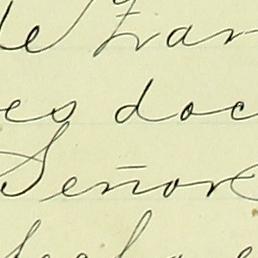 de Fran
es doc
Señor